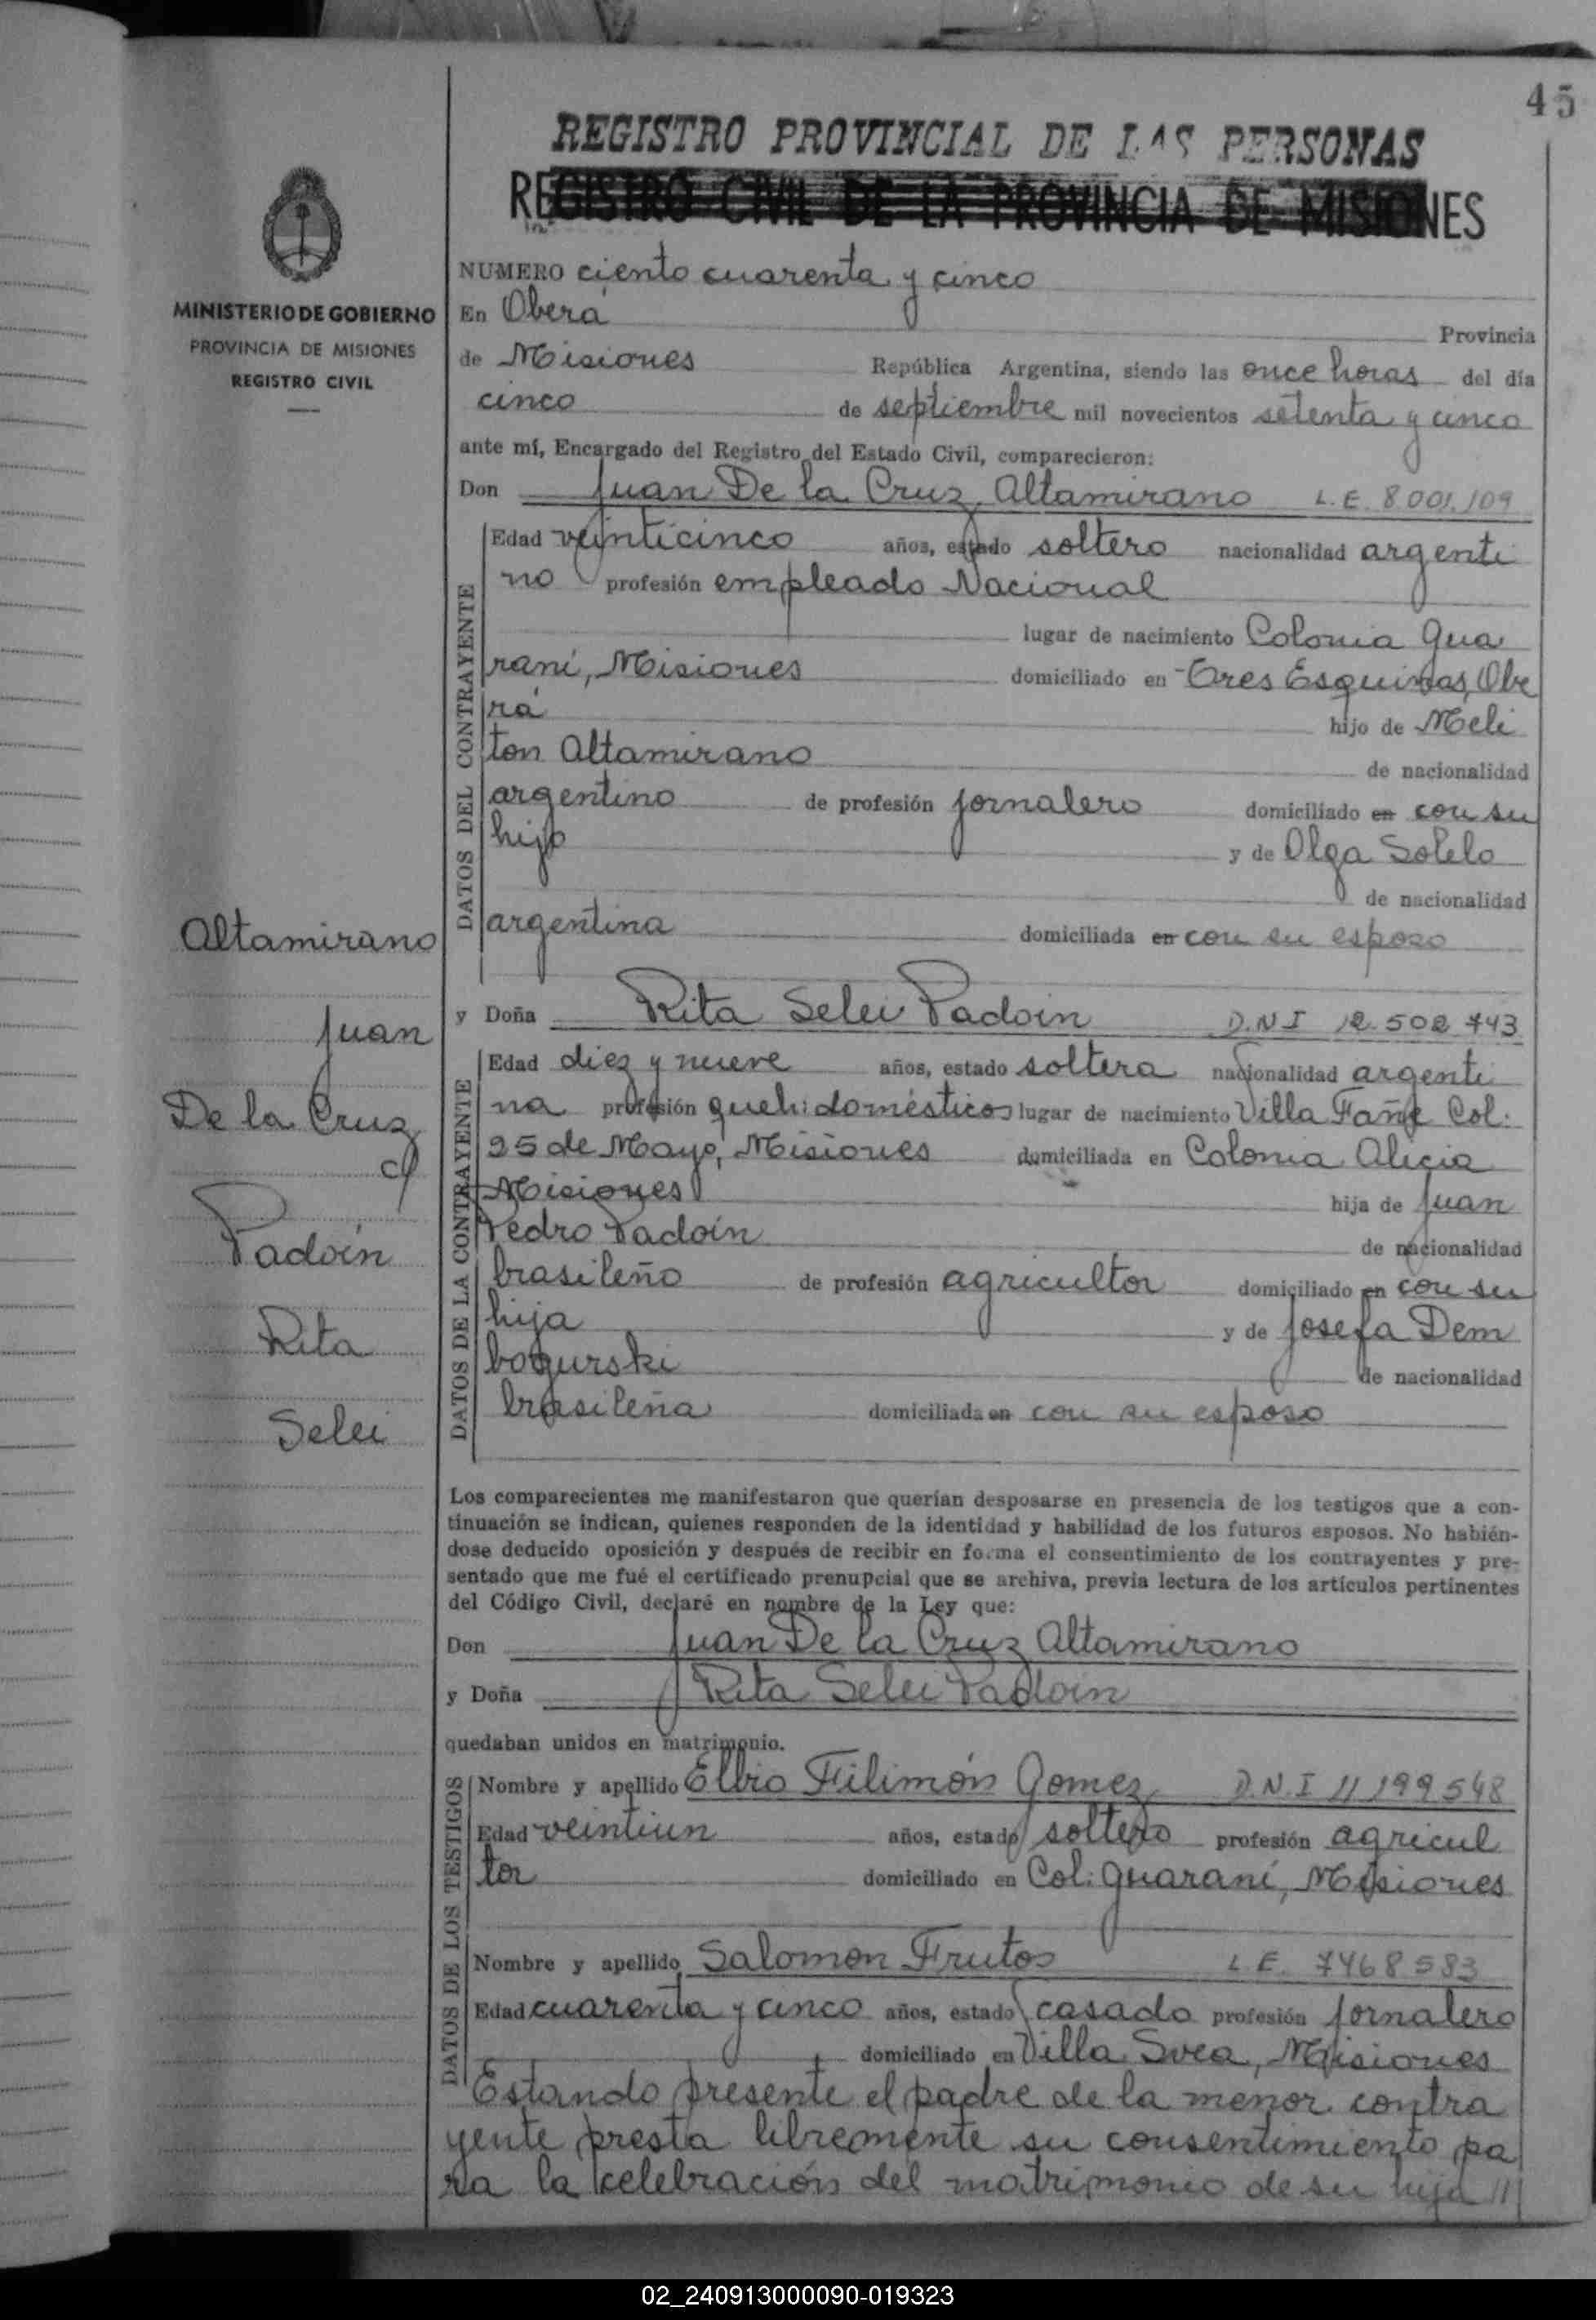 45
REGISTRO PROVINCIAL DE LAS PERSONAS
REGISTRO CIVIL DE LA PROVINCIA DE MISIONES
MINISTERIO DE GOBIERNO
PROVINCIA DE MISIONES
REGISTRO CIVIL
NUMERO ciento cuarenta y cinco
En Oberá Provincia
de Misiones República Argentina, siendo las once horas del día
cinco de septiembre mil novecientos setenta y cinco
ante mí, Encargado del Registro del Estado Civil, comparecieron:
Don Juan De la Cruz Altamirano L.E. 8001.109
DATOS DEL CONTRAYENTE
Edad veinticinco años, estado soltero nacionalidad argenti
no profesión empleado Nacional
lugar de nacimiento Colonia Gua
raní, Misiones domiciliado en Tres Esquinas, Obe
rá hijo de Meli
ton Altamirano de nacionalidad
argentino de profesión jornalero domiciliado en con su
hijo y de Olga Sotelo
de nacionalidad
argentina domiciliada en con su esposo
Altamirano
Juan
De la Cruz
c/
Padoin
Rita
Selei
y Doña Rita Selei Padoin D.N.I 12.502.743
DATOS DE LA CONTRAYENTE
Edad diez y nueve años, estado soltera nacionalidad argenti
na profesión queh: domésticos lugar de nacimiento Villa Fañe Col:
25 de Mayo, Misiones domiciliada en Colonia Alicia
Misiones hija de Juan
Pedro Padoin de nacionalidad
brasileño de profesión agricultor domiciliado en con su
hija y de Josefa Dem
bogurski de nacionalidad
brasileña domiciliada en con su esposo
Los comparecientes me manifestaron que querían desposarse en presencia de los testigos que a con-
tinuación se indican, quienes responden de la identidad y habilidad de los futuros esposos. No habién-
dose deducido oposición y después de recibir en forma el consentimiento de los contrayentes y pre-
sentado que me fué el certificado prenupcial que se archiva, previa lectura de los artículos pertinentes
del Código Civil, declaré en nombre de la Ley que:
Don Juan De la Cruz Altamirano
y Doña Rita Selei Padoin
quedaban unidos en matrimonio.
DATOS DE LOS TESTIGOS
Nombre y apellido Elbio Filimón Gomez D.N.I 11199548
Edad veintiun años, estado soltero profesión agricul
tor domiciliado en Col: Guaraní, Misiones
Nombre y apellido Salomon Frutos L.E. 7468583
Edad cuarenta y cinco años, estado casado profesión jornalero
domiciliado en Villa Svea, Misiones
Estando presente el padre de la menor contra
yente presta libremente su consentimiento pa
ra la celebración del matrimonio de su hija ///
02_240913000090-019323